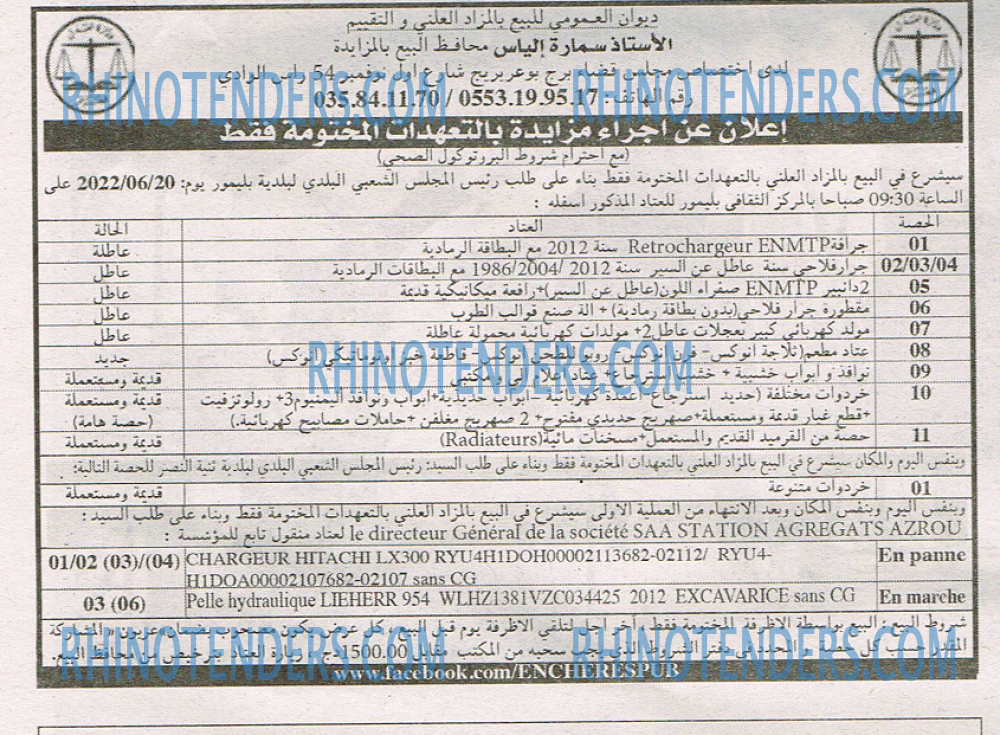 ديوان العمومي للبيع بالمزاد العلني و التقييم
الأستاذ سمارة إلياس محافظ البيع بالمزايدة
لدى اختصاص مجلس قضاء برج بوعريريج شارع أول نوفمبر 54 راس الوادي
رقم الهاتف: 0553.19.95.17 / 035.84.11.70
RHINOTENDERS.COM RHINOTENDERS.COM
إعلان عن اجراء مزايدة بالتعهدات المختومة فقط
(مع احترام شروط البروتوكول الصحي)
سيشرع في البيع بالمزاد العلني بالتعهدات المختومة فقط بناء على طلب رئيس المجلس الشعبي البلدي لبلدية بليمور يوم: 2022/06/20 على
الساعة 09:30 صباحا بالمركز الثقافي بليمور للعتاد المذكور اسفله :
الحصة العتاد الحالة
01 جرافة Retrochargeur ENMTP سنة 2012 مع البطاقة الرمادية عاطلة
02/03/04 جرار فلاحي سنة عاطل عن السير سنة 2012 /1986/2004 مع البطاقات الرمادية عاطل
05 2دانبير ENMTP صفراء اللون(عاطل عن السير)+رافعة ميكانيكية قديمة عاطل
06 مقطورة جرار فلاحي(بدون بطاقة رمادية) + الة صنع قوالب الطوب عاطل
07 مولد كهربائي كبير بعجلات عاطل+2 مولدات كهربائية محمولة عاطلة عاطل
08 عتاد مطعم(ثلاجة انوكس- فرن انوكس- روبو للطحن انوكس- قاطعة خبز اوتوماتيكي انوكس) جديد
RHINOTENDERS.COM
09 نوافذ و ابواب خشبية + خشب استرجاع+ عتاد اعلام الي و مكتبي قديمة ومستعملة
10 خردوات مختلفة (حديد استرجاع+ اعمدة كهربائية +ابواب حديدية+ابواب ونوافذ المنيوم+3 رولوتزفيت قديمة ومستعملة
+قطع غيار قديمة ومستعملة+صهريج حديدي مفتوح+ 2 صهريج مغلفن +حاملات مصابيح كهربائية.) (حصة هامة)
11 حصة من القرميد القديم والمستعمل+مسخنات مائية(Radiateurs) قديمة ومستعملة
وبنفس اليوم والمكان سيشرع في البيع بالمزاد العلني بالتعهدات المختومة فقط وبناء على طلب السيد: رئيس المجلس الشعبي البلدي لبلدية ثنية النصر للحصة التالية:
01 خردوات متنوعة قديمة ومستعملة
وبنفس اليوم وبنفس المكان وبعد الانتهاء من العملية الاولى سيشرع في البيع بالمزاد العلني بالتعهدات المختومة فقط وبناء على طلب السيد :
le directeur Général de la société SAA STATION AGREGATS AZROU لعتاد منقول تابع للمؤسسة :
01/02 (03)/(04) CHARGEUR HITACHI LX300 RYU4H1DOH00002113682-02112/ RYU4- En panne
H1DOA00002107682-02107 sans CG
03 (06) Pelle hydraulique LIEHERR 954 WLHZ1381VZC034425 2012 EXCAVARICE sans CG En marche
شروط البيع : البيع بواسطة الاظرفة المختومة فقط، وآخر اجل لتلقي الاظرفة يوم قبل البيع، كل عرض يكون مصحوب بضمان عربون « المشاركة
RHINOTENDERS.COM RHINOTENDERS.COM
حسب كل حصة و المحدد في دفتر الشروط الذي يجب سحبه من المكتب مقابل 1500.00دج، زيارة العتاد بترخيص من محافظ البيع.
www.facebook.com/ENCHERESPUB